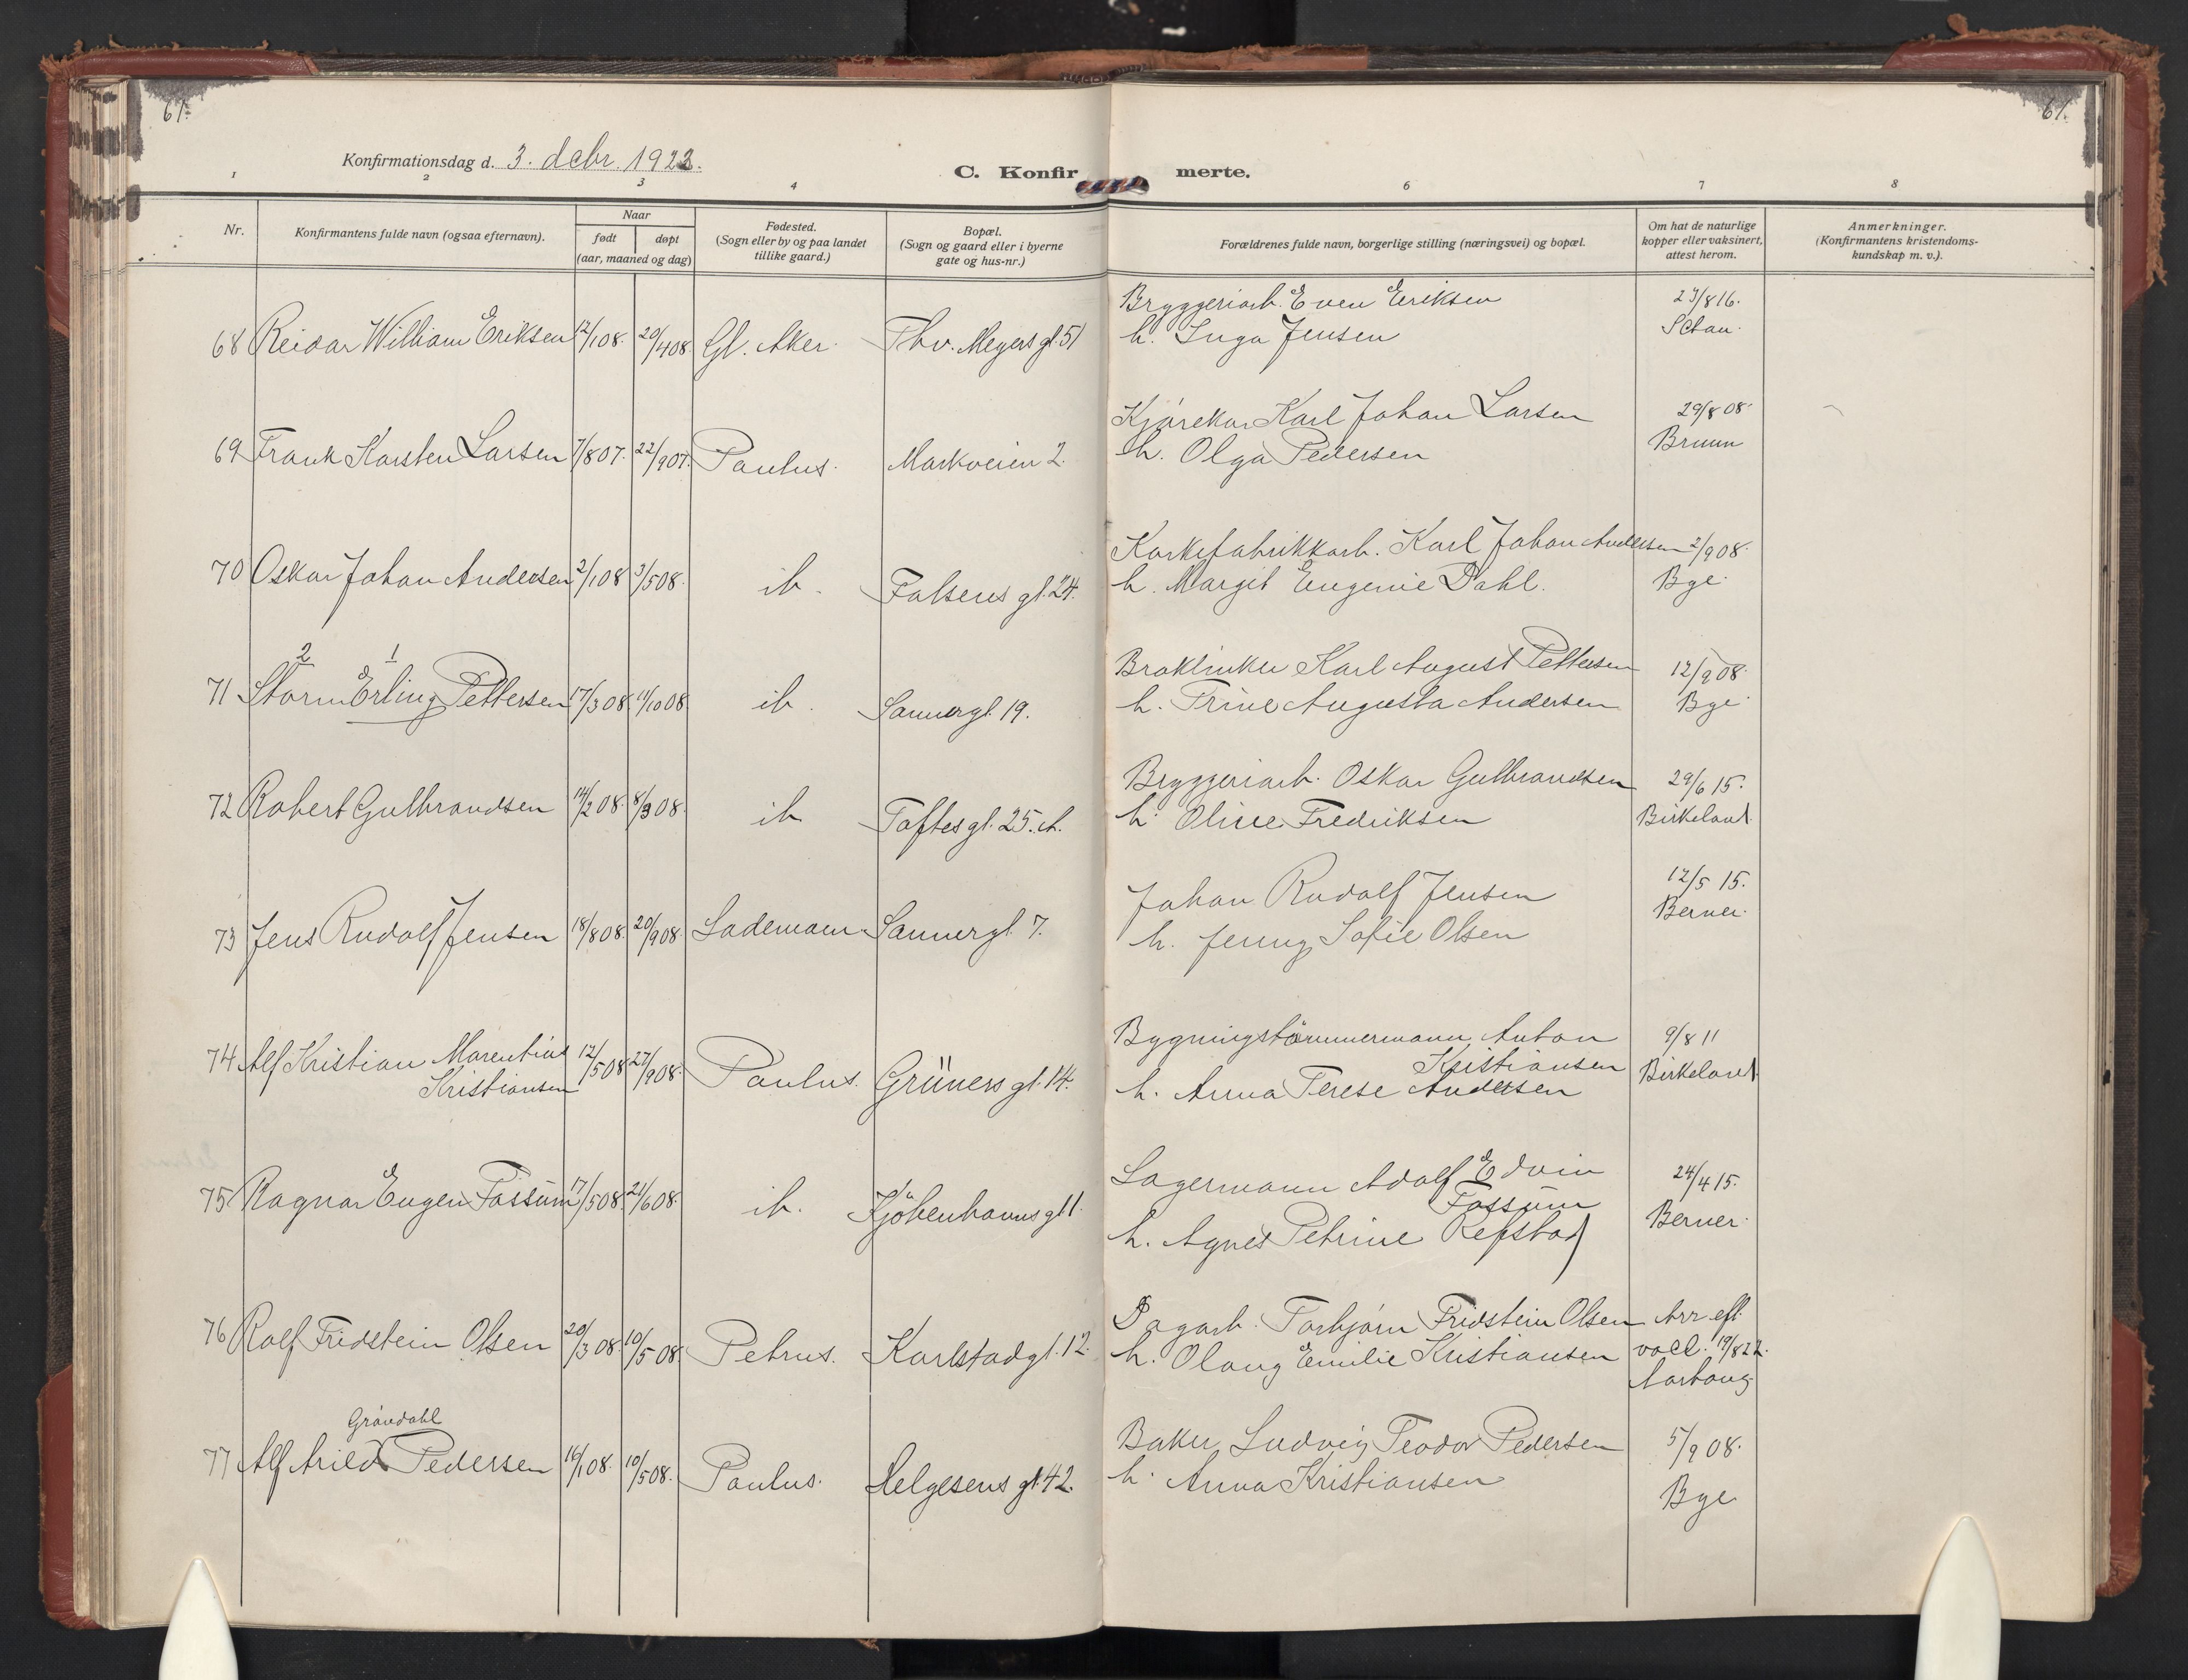 61.
61.
Konfirmationsdag d. 3. debr. 1922.
C. Konfirmerte.
1 2 3 4 6 7 8
Nr.
Konfirmantens fulde navn (ogsaa efternavn).
Naar
født døpt
(aar, maaned og dag)
Fødested.
(Sogn eller by og paa landet
tillike gaard.)
Bopæl.
(Sogn og gaard eller i byerne
gate og hus-nr.)
Forældrenes fulde navn, borgerlige stilling (næringsvei) og bopæl.
Om hat de naturlige
kopper eller vaksinert,
attest herom.
Anmerkninger.
(Konfirmantens kristendoms-
kundskap m. v.).
68 Reidar William Eriksen 12/1 08. 20/4 08. Gl. Aker. Thv. Meyers gt. 51
Bryggeriarb. Even Eriksen
h. Inga Jensen
23/8 16.
Schau.
69 Frank Karsten Larsen 7/8 07. 22/9 07. Paulus. Markveien 2.
Kjørekar Karl Johan Larsen
h. Olga Pedersen
29/8 08.
Bruun
70 Oskar Johan Andersen 2/1 08 3/5 08. ib. Falsens gt. 24.
Korkefabrikkarb. Karl Johan Andersen
h. Margit Eugenie Dahl.
2/9 08.
Bye.
2 1
71 Storm Erling Pettersen 17/3 08. 11/10 08 ib. Sannergt. 19.
Karl August Pettersen
h. Trine Augusta Andersen
12/9 08.
Bye.
72 Robert Gulbrandsen 14/2 08. 8/3 08. ib Toftes gt. 25. A.
Bryggeriarb. Oskar Gulbrandsen
h. Oline Fredriksen
29/6 15.
Birkeland.
73 Jens Rudolf Jensen 18/8 08. 20/9 08. Lademoen. Sannergt. 7.
Johan Rudolf Jensen
h. Jenny Sofie Olsen
12/5 15.
Berner.
74 Alf Kristian Marentius
Kristiansen
12/5 08 27/9 08. Paulus. Grüners gt. 14.
Bygningstømmermann Anton
Kristiansen
h. Anna Terese Andersen
9/8 11
Birkeland
75 Ragnar Eugen Fossum 17/5 08. 21/6 08. ib. Kjøbenhavns gt 1.
Lagermann Adolf Edvin
Fossum
h. Agnes Petrine Refstad
24/4 15.
Berner.
76 Rolf Fridstein Olsen 20/3 08. 10/5 08. Petrus. Karlstadgt. 12.
Dagarb. Torbjørn Fridstein Olsen
h. Olaug Emilie Kristiansen
Arr. eft.
vacc. 19/8 22.
Aarhaug
Grøndahl
77 Alf Arild Pedersen 16/1 08. 10/5 08. Paulus. Helgesens gt. 42.
Baker Ludvig Teodor Pedersen
h. Anna Kristiansen
5/9 08.
Bye